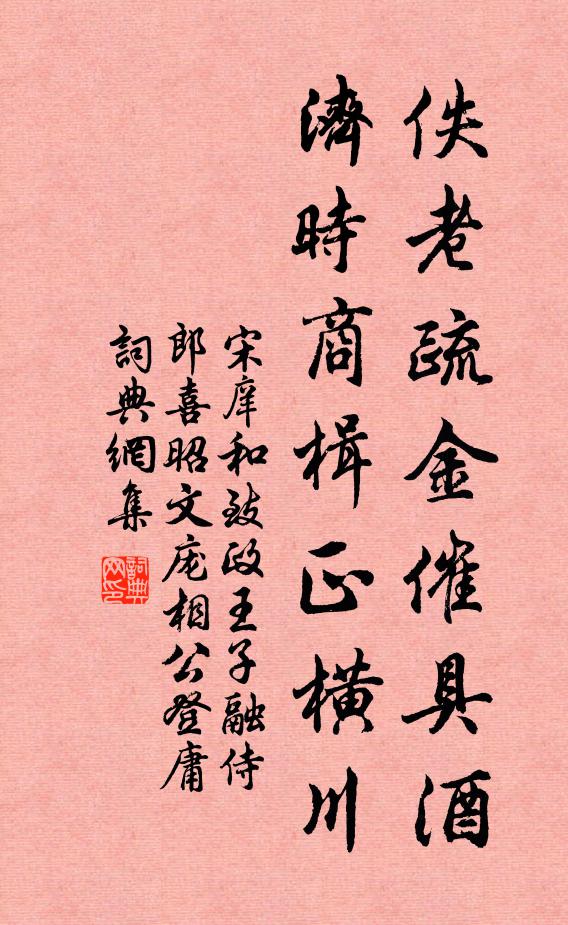 佚老疏金催具酒
濟時商楫正橫川
宋庠和致政王子融侍
郎喜昭文庞相公登庸
詞典網集
詞典
网印